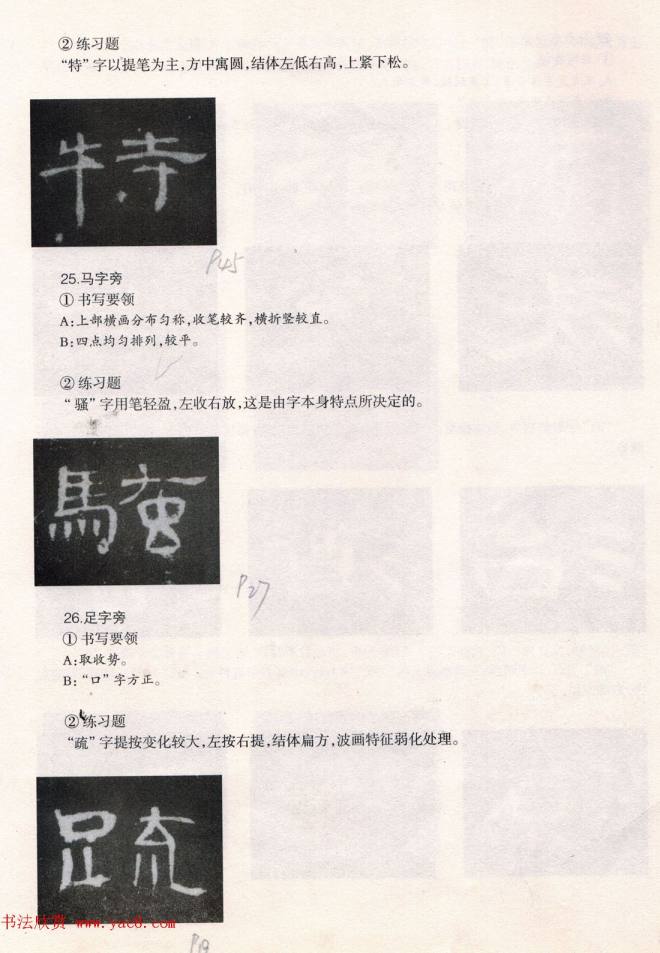 ② 练习题
“特”字以提笔为主,方中寓圆,结体左低右高,上紧下松。
特
P45
25.马字旁
① 书写要领
A:上部横画分布匀称,收笔较齐,横折竖较直。
B:四点均匀排列,较平。
② 练习题
“骚”字用笔轻盈,左收右放,这是由字本身特点所决定的。
P27
26.足字旁
① 书写要领
A:取收势。
B:“口”字方正。
② 练习题
“疏”字提按变化较大,左按右提,结体扁方,波画特征弱化处理。
书法欣赏 www.yac8.com
P19